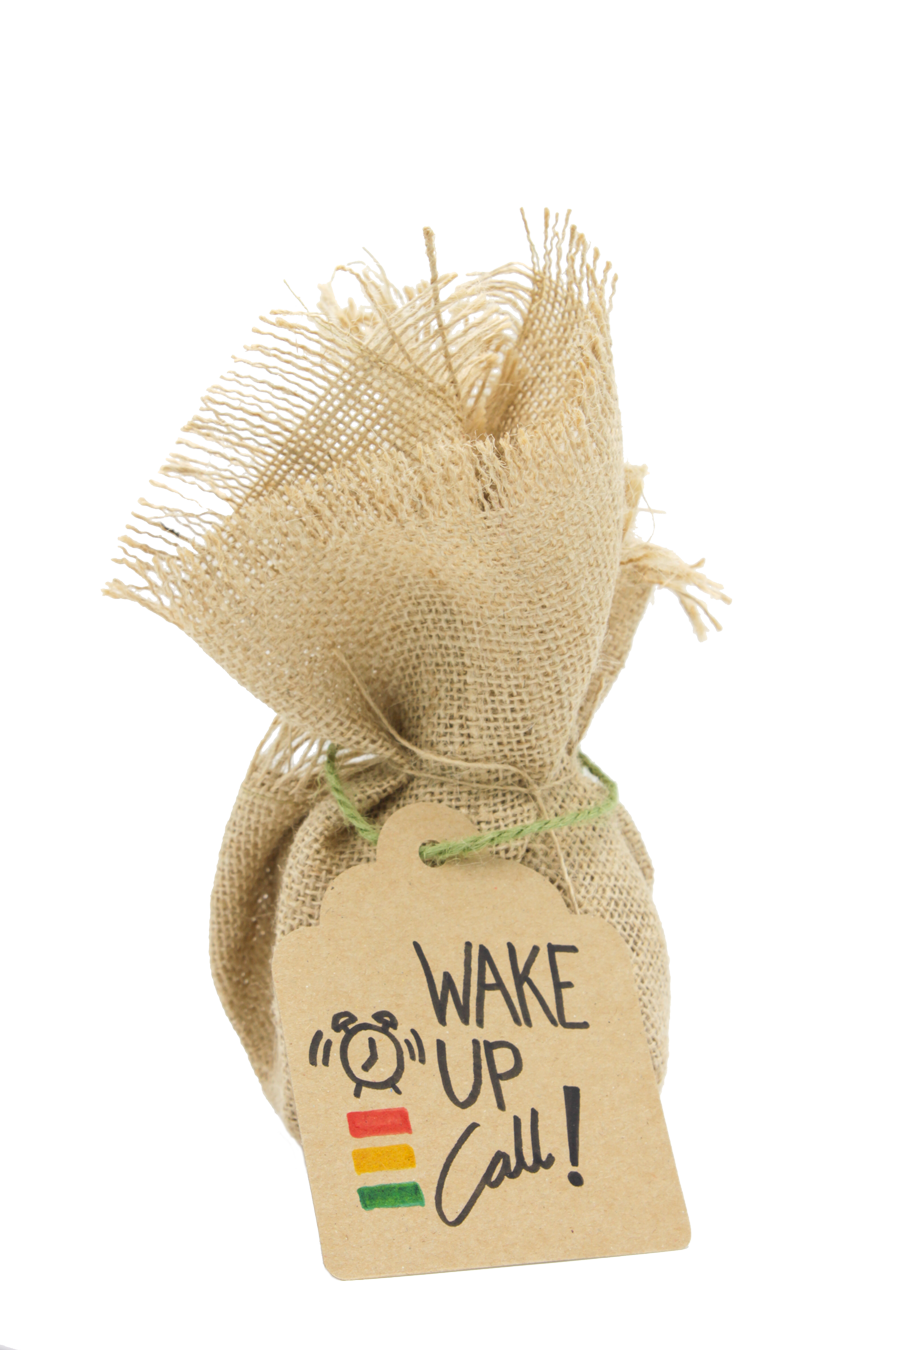 WAKE
UP
Call!